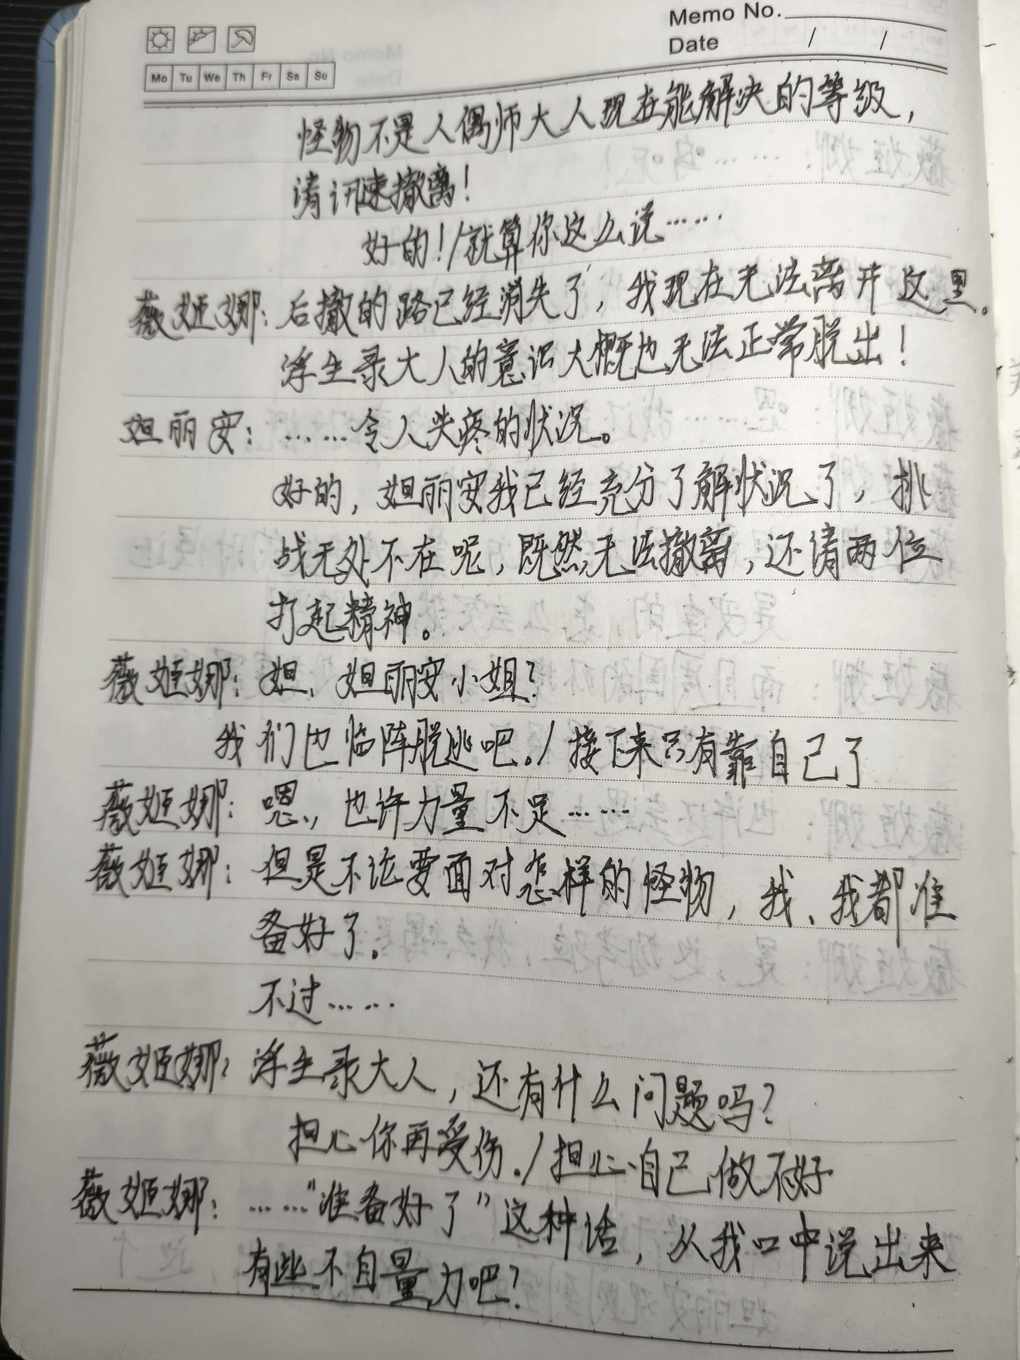 Memo No.
Date / /
Mo Tu We Th Fr Sa Su
怪物不是人偶师大人现在能解决的等级，
请讯速撤离！
好的！/就算你这么说……
薇姬娜：后撤的路已经消失了，我现在无法离开这里。
浮生录大人的意识大概也无法正常脱出！
妲丽安：……令人头疼的状况。
好的，妲丽安我已经充分了解状况了，挑
战无处不在呢，既然无法撤离，还请两位
打起精神。
薇姬娜：妲、妲丽安小姐？
我们也临阵脱逃吧。/接下来只有靠自己了
薇姬娜：嗯，也许力量不足……
薇姬娜：但是不论要面对怎样的怪物，我、我都准
备好了。
不过……
薇姬娜：浮生录大人，还有什么问题吗？
担心你再受伤。/担心自己做不好
薇姬娜：……“准备好了”这种话，从我口中说出来
有些不自量力吧？